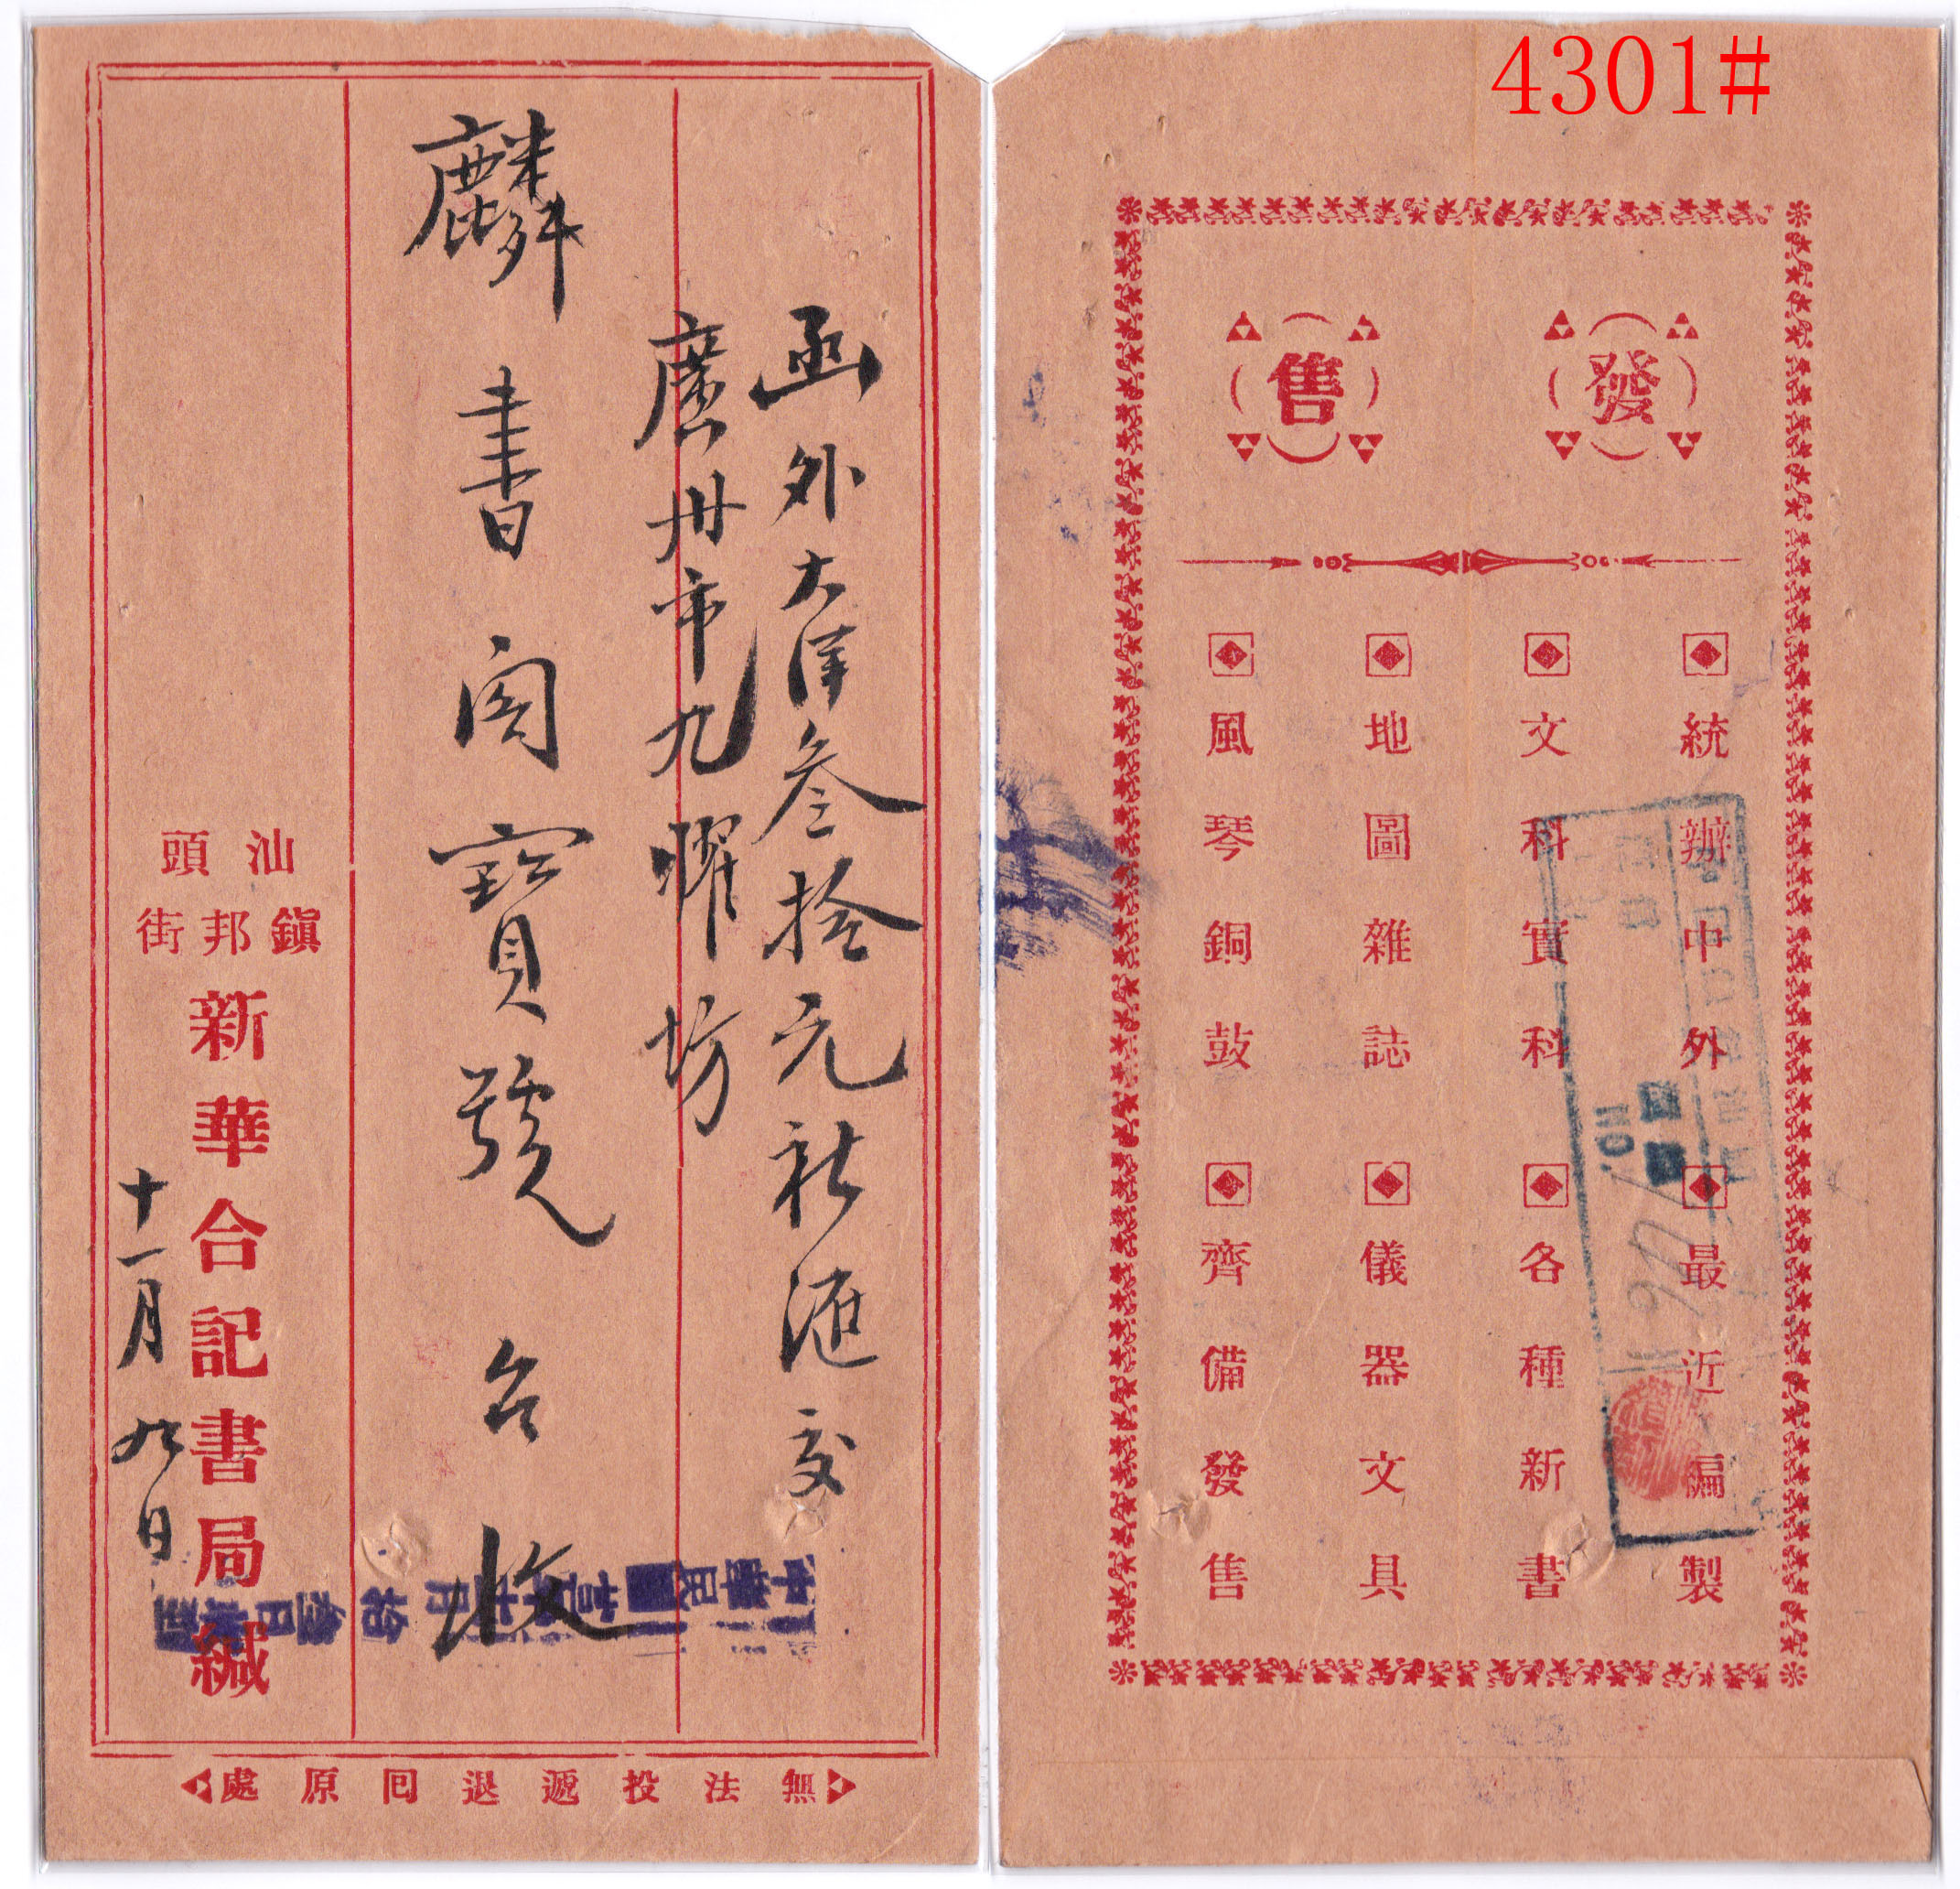 函外大洋叁拾元祈滙交
廣州市九曜坊
麟書閣寶號台收
汕頭
鎮邦街
新華合記書局緘
十一月九日
無法投遞退囘原處
4301#
發售
統辦中外
最近編製
文科實科
各種新書
地圖雜誌
儀器文具
風琴銅鼓
齊備發售